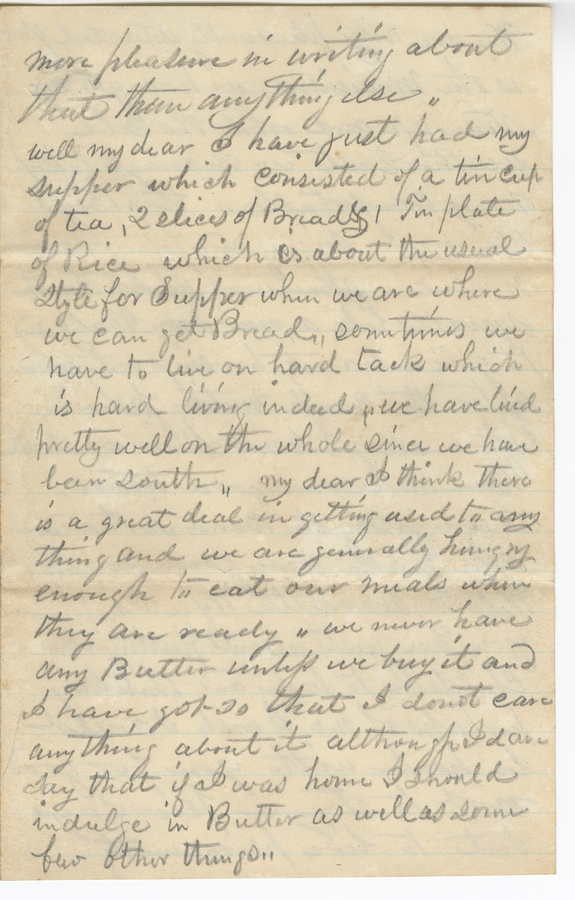 more pleasure in writing about
that than anything else "
well my dear I have just had my
supper which consisted of a tin cup
of tea, 2 slices of Bread & 1 Tin plate
of Rice which is about the usual
Style for Supper when we are where
we can get Bread " sometimes we
have to live on hard tack which
is hard living indeed " we have lived
pretty well on the whole since we have
been South " my dear I think there
is a great deal in getting used to any
thing and we are generally hungry
enough to eat our meals when
they are ready " we never have
any Butter unless we buy it and
I have got so that I donot care
anything about it although I dare
say that if I was home I should
indulge in Butter as well as some
few other things "